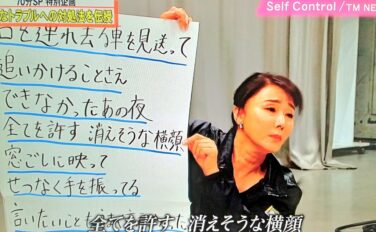 70分SP 特別企画
なトラブルへの対処法を伝授
Self Control/TM NE
ロを連れ去
を見送って
追いかけることさえ
できなかったあの夜
全てを許す 消えそうな横顔
窓ごしに映って
せつなく手を振ってる
言いたいこと
全てを許すに消えそうな横顔